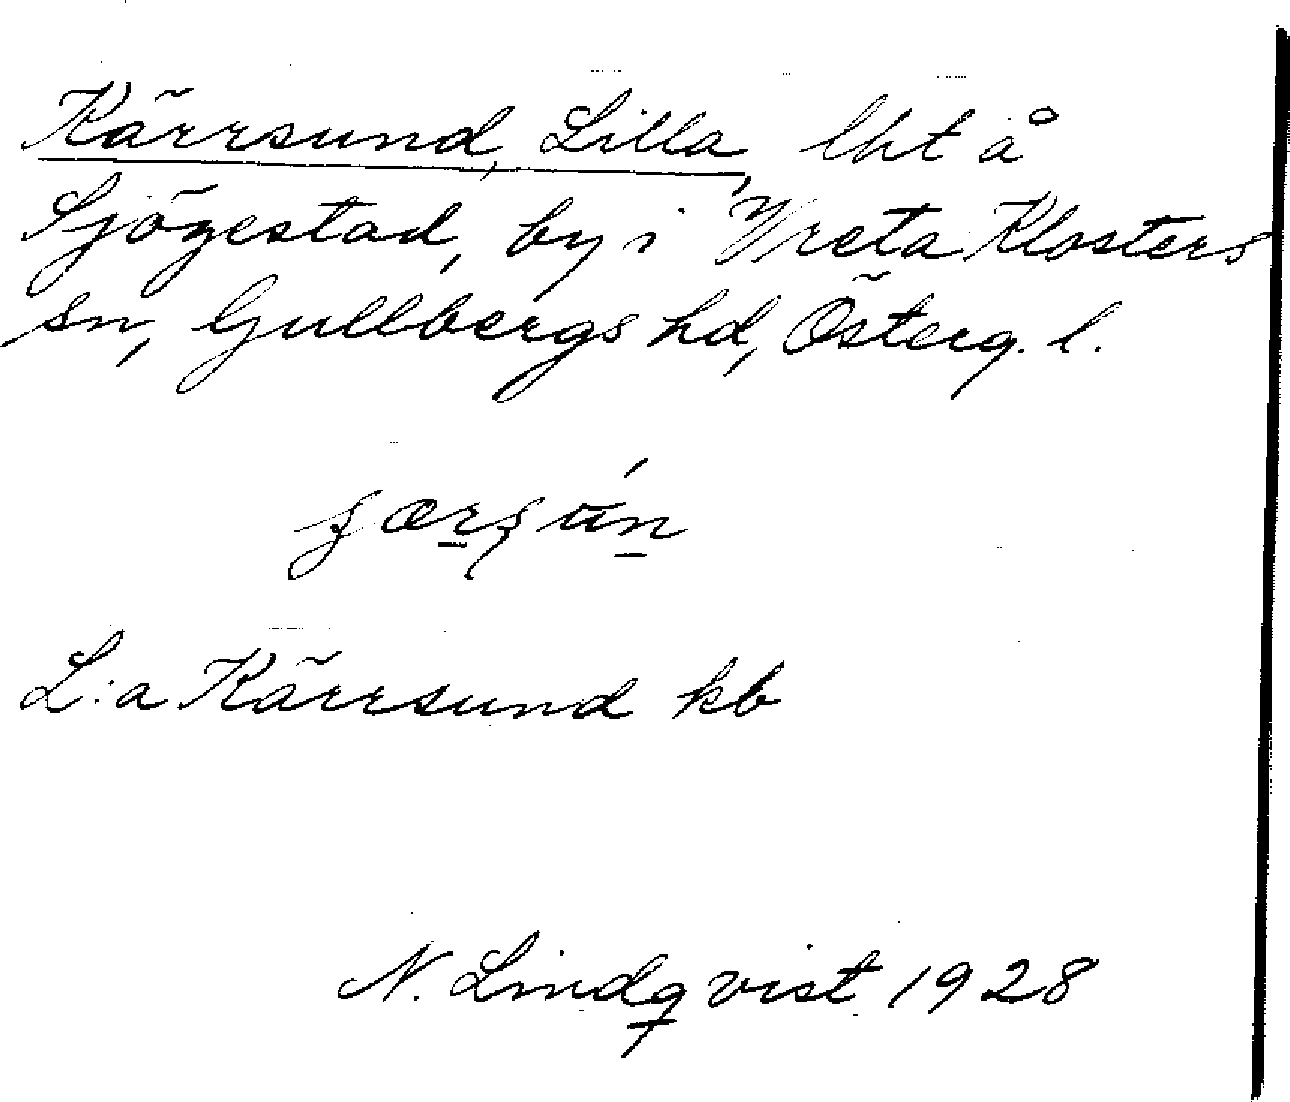 Kärrsund, Lilla, lht å
Sjögestad, by i Vreta Klosters
sn, Gullbergs hd, Österg. l.
L:a Kärrsund kb
N. Lindqvist 1928